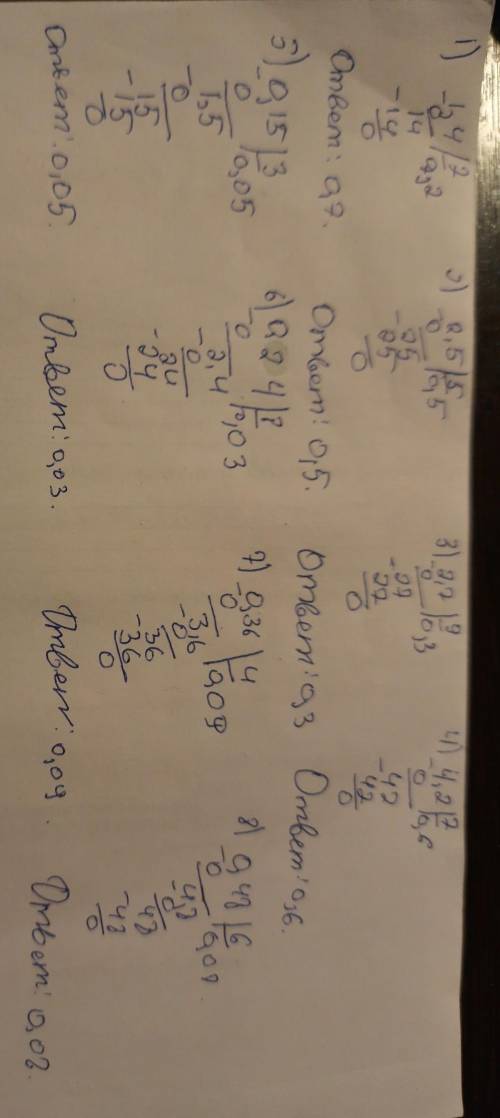 1) -1,4 | 2
0 0,7
14
-14
0
Ответ: 0,7.
2) -2,5 | 5
0 0,5
25
-25
0
Ответ: 0,5.
3) -2,7 | 9
0 0,3
27
-27
0
Ответ: 0,3
4) -4,2 | 7
0 0,6
-42
42
0
Ответ: 0,6.
5) -0,15 | 3
0 0,05
1,5
-0
15
-15
0
Ответ: 0,05.
6) -0,24 | 8
0 0,03
2,4
-0
24
-24
0
Ответ: 0,03.
7) -0,36 | 4
0 0,09
3,6
-0
36
-36
0
Ответ: 0,09.
8) -0,48 | 6
0 0,08
-4,8
0
48
-48
0
Ответ: 0,08.